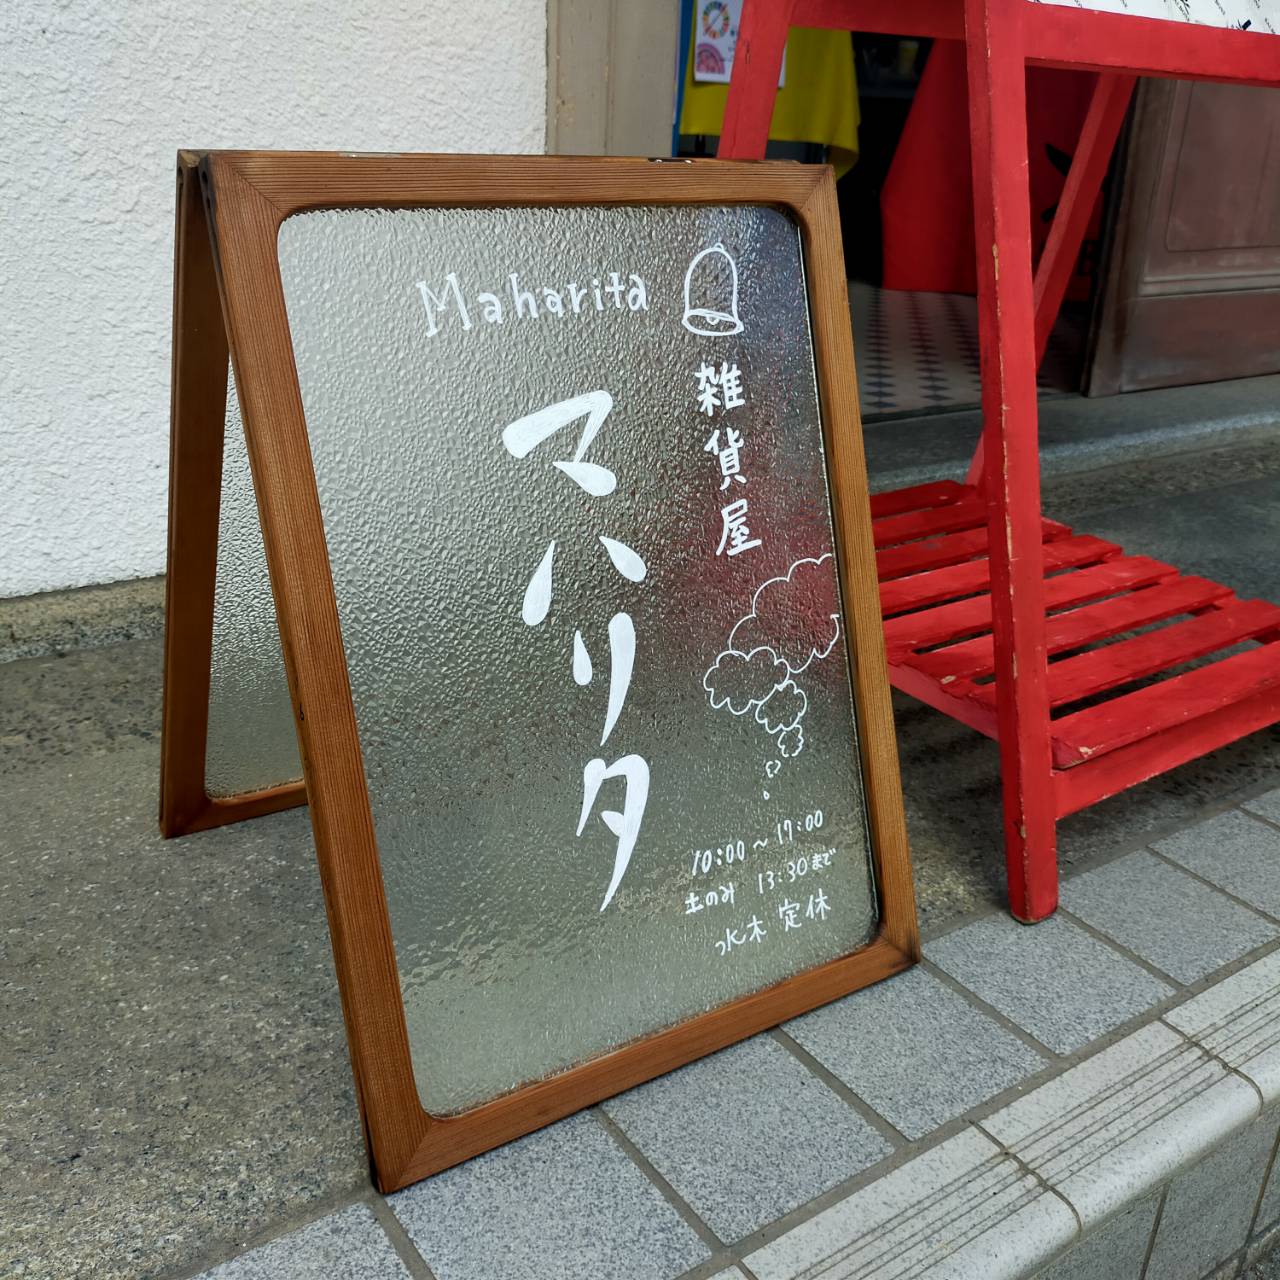 Maharita
雑貨屋
マハリタ
10:00～17:00
土のみ 13:30まで
水木 定休